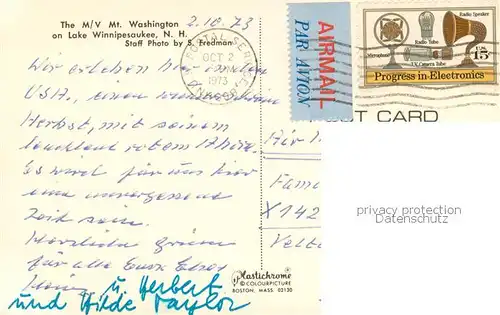 The M/V Mt. Washington
on Lake Winnipesaukee, N. H.
Staff Photo by S. Fredman
2.10.73
POSTAL SERVICE
OCT 2
1973
AIRMAIL
PAR AVION
Radio Speaker
Radio Tube
Microphone
TV Camera Tube
U.S. 15c
Progress in Electronics
POST CARD
Wir erleben hier in den
USA, einen wunderschönen
Herbst, mit seinem
leuchtend rotem Ahorn.
Es wird für uns hier
eine unvergessene
Zeit sein.
Herzliche Grüsse
für alle Eure
u. Herbert
und Hilde Taylor
Air
Fam
X 142
Velt
privacy protection
Datenschutz
Plastichrome
® COLOURPICTURE
BOSTON, MASS. 02130